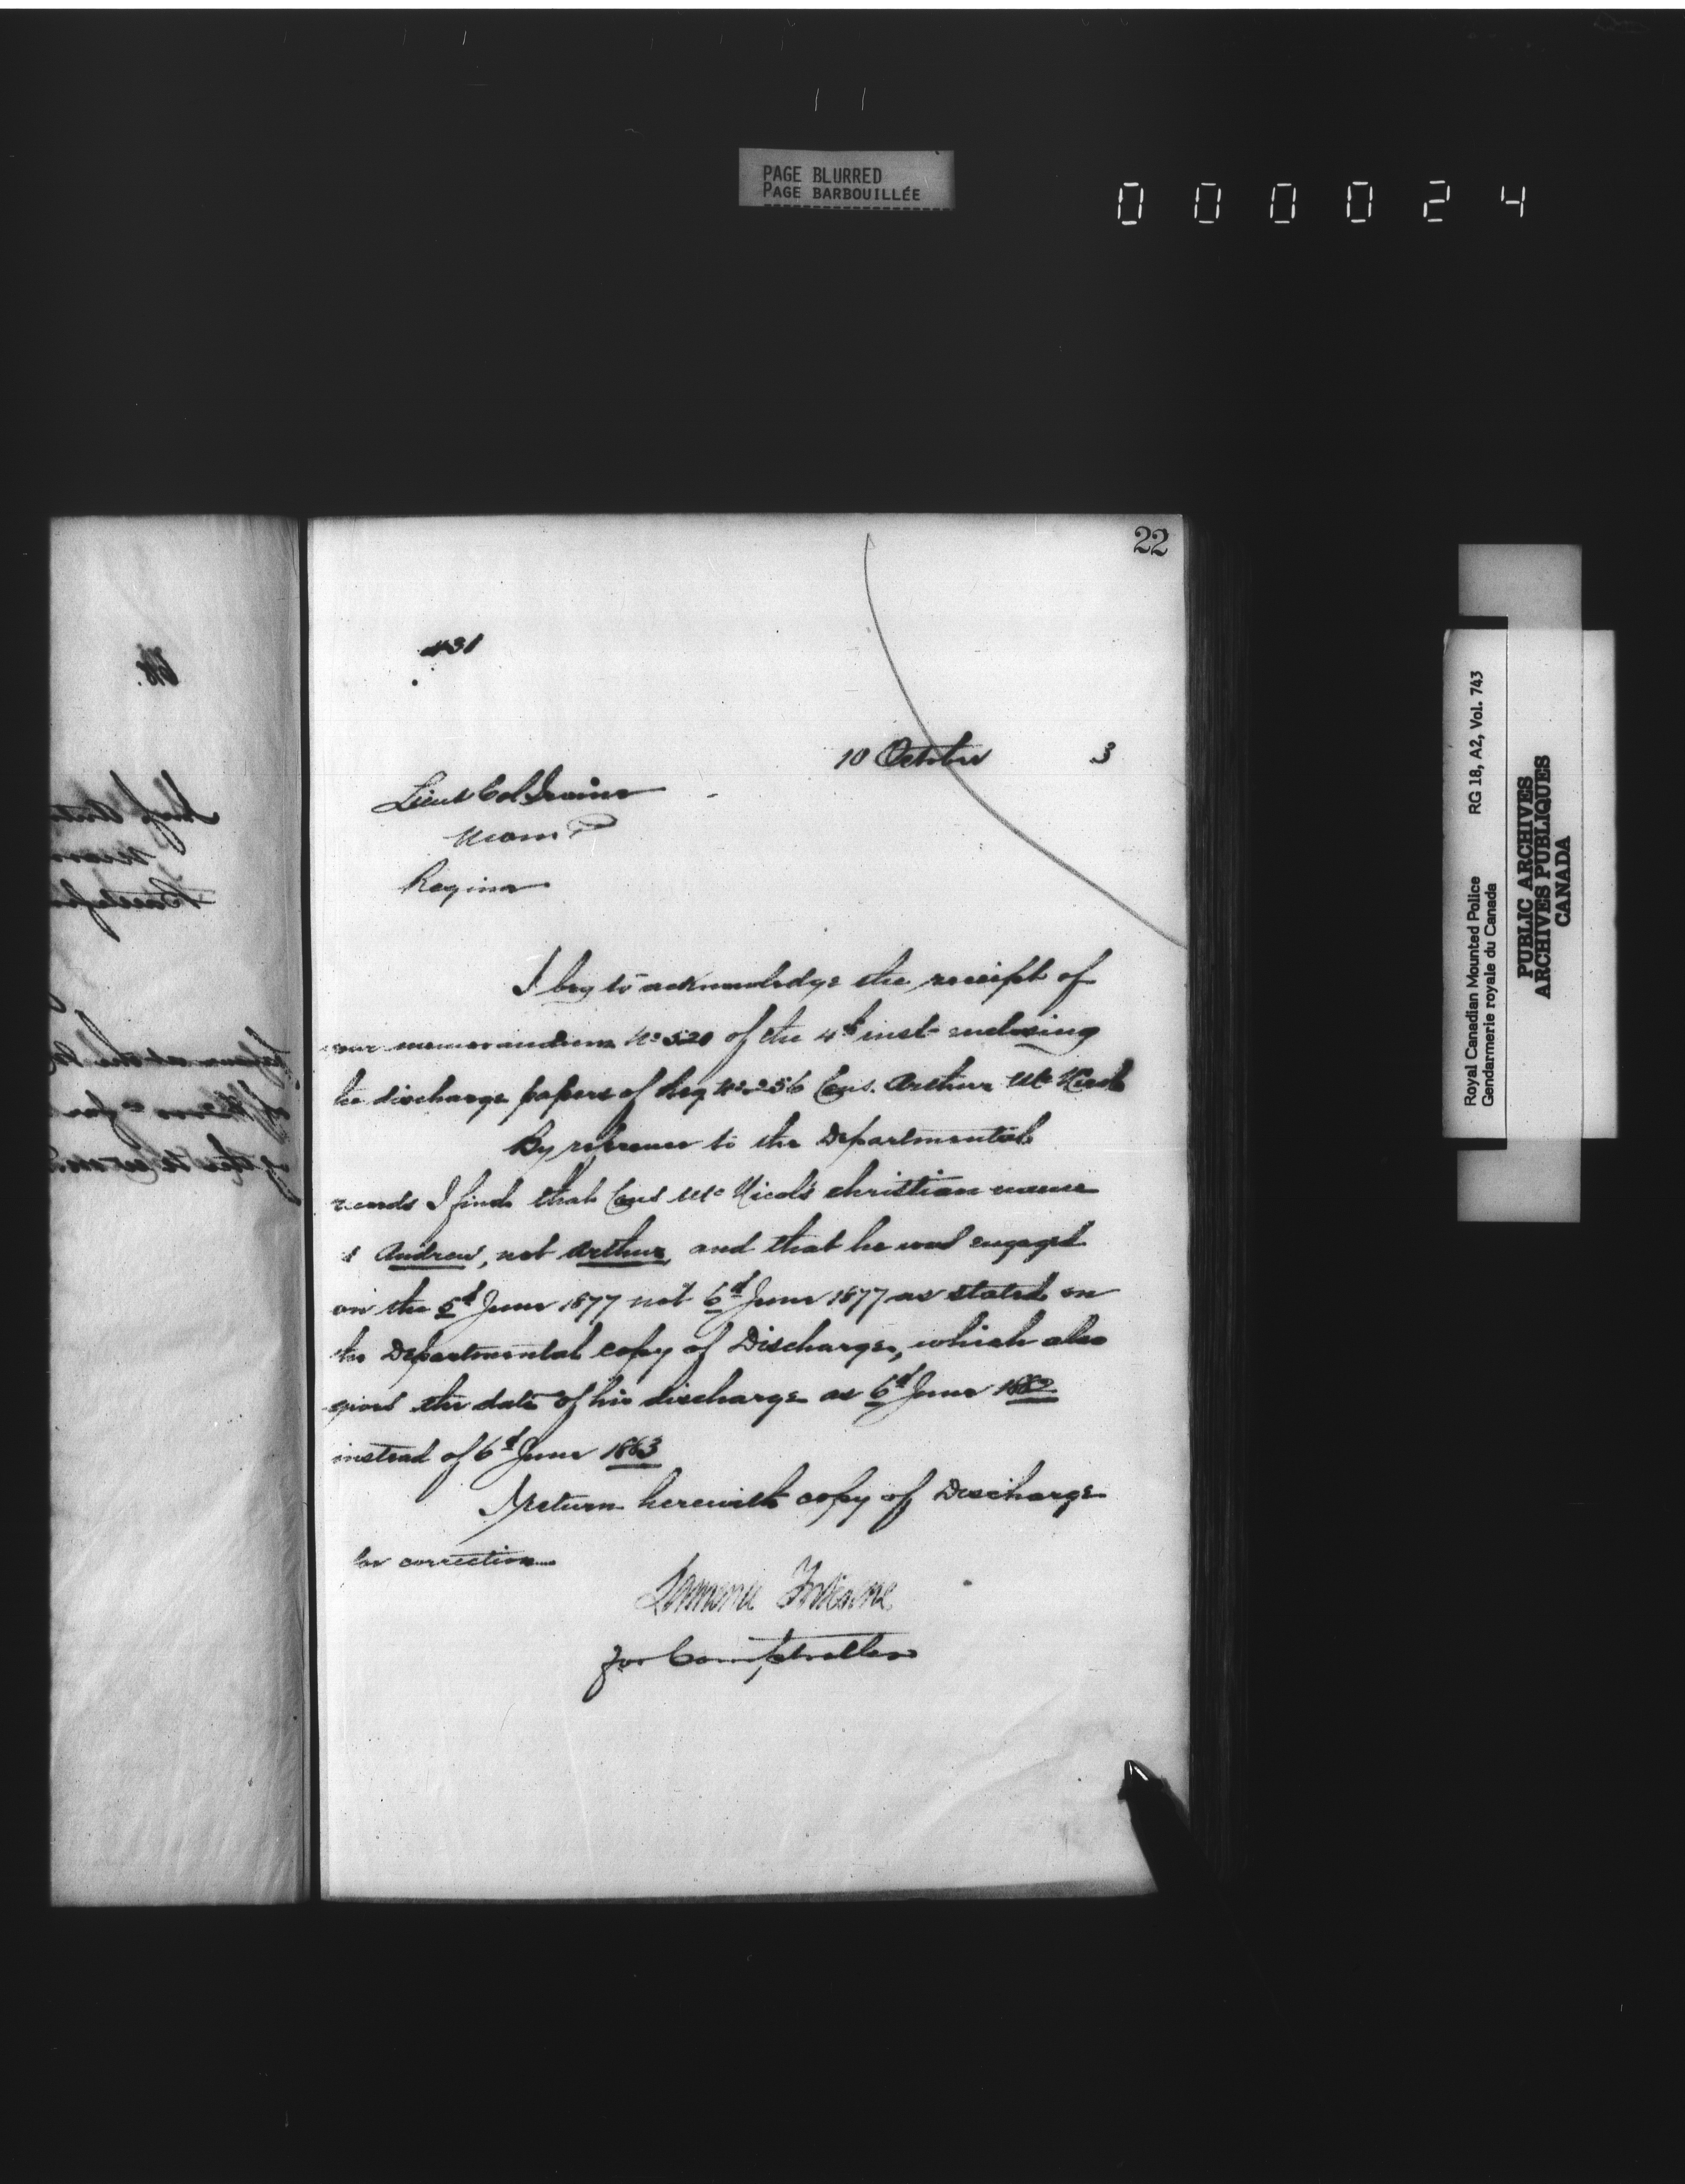 PAGE BLURRED
PAGE BARBOUILLÉE
000024
22
431
10 October 3
Lieut Col Irvine
Regina
I beg to acknowledge the receipt of
your memorandum No 520 of the 4th inst enclosing
he discharge papers of Reg No 256 Cons. Arthur McNicol
By reference to the Departmental
records I find that Cons McNicol's christian name
s Andrew, not Arthur, and that he was engaged
on the 5th June 1877 not 6th June 1877 as stated on
the Departmental copy of Discharge, which also
gives the date of his discharge as 6th June 1882
instead of 6th June 1883
I return herewith copy of Discharge
for correction
Fortescue
for Comptroller
Royal Canadian Mounted Police RG 18, A2, Vol. 743
Gendarmerie royale du Canada
PUBLIC ARCHIVES
ARCHIVES PUBLIQUES
CANADA